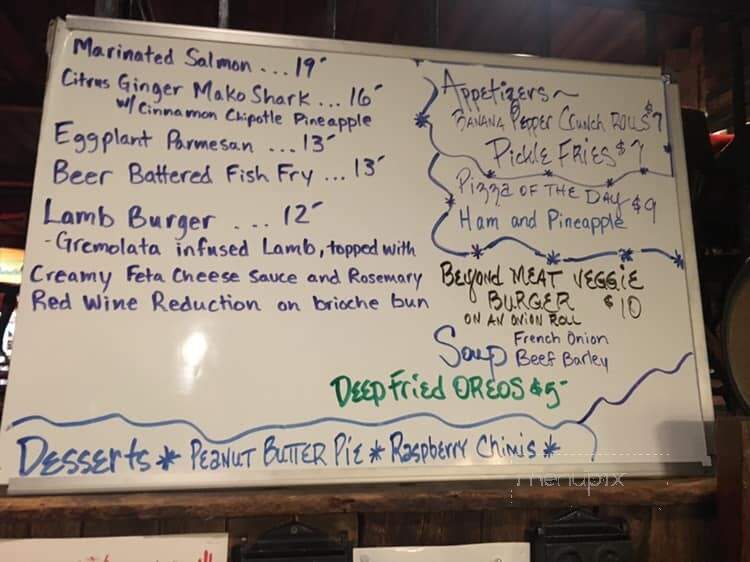 Marinated Salmon ... 19-
Citrus Ginger Mako Shark ... 16-
w/ Cinnamon Chipotle Pineapple
Eggplant Parmesan ... 13-
Beer Battered Fish Fry ... 13-
Lamb Burger .... 12-
- Gremolata infused Lamb, topped with
Creamy Feta Cheese Sauce and Rosemary
Red Wine Reduction on brioche bun
Appetizers ~
BANANA Pepper Crunch ROLLS $7
Pickle FRIES $7
Pizza OF THE DAY $9
Ham and Pineapple
Beyond MEAT VEGGIE
BURGER $10
ON AN ONION ROLL
Soup French Onion
Beef Barley
Deep Fried OREOS $5-
Desserts * PEANUT BUTTER PIE * Raspberry Chimis *
menupix